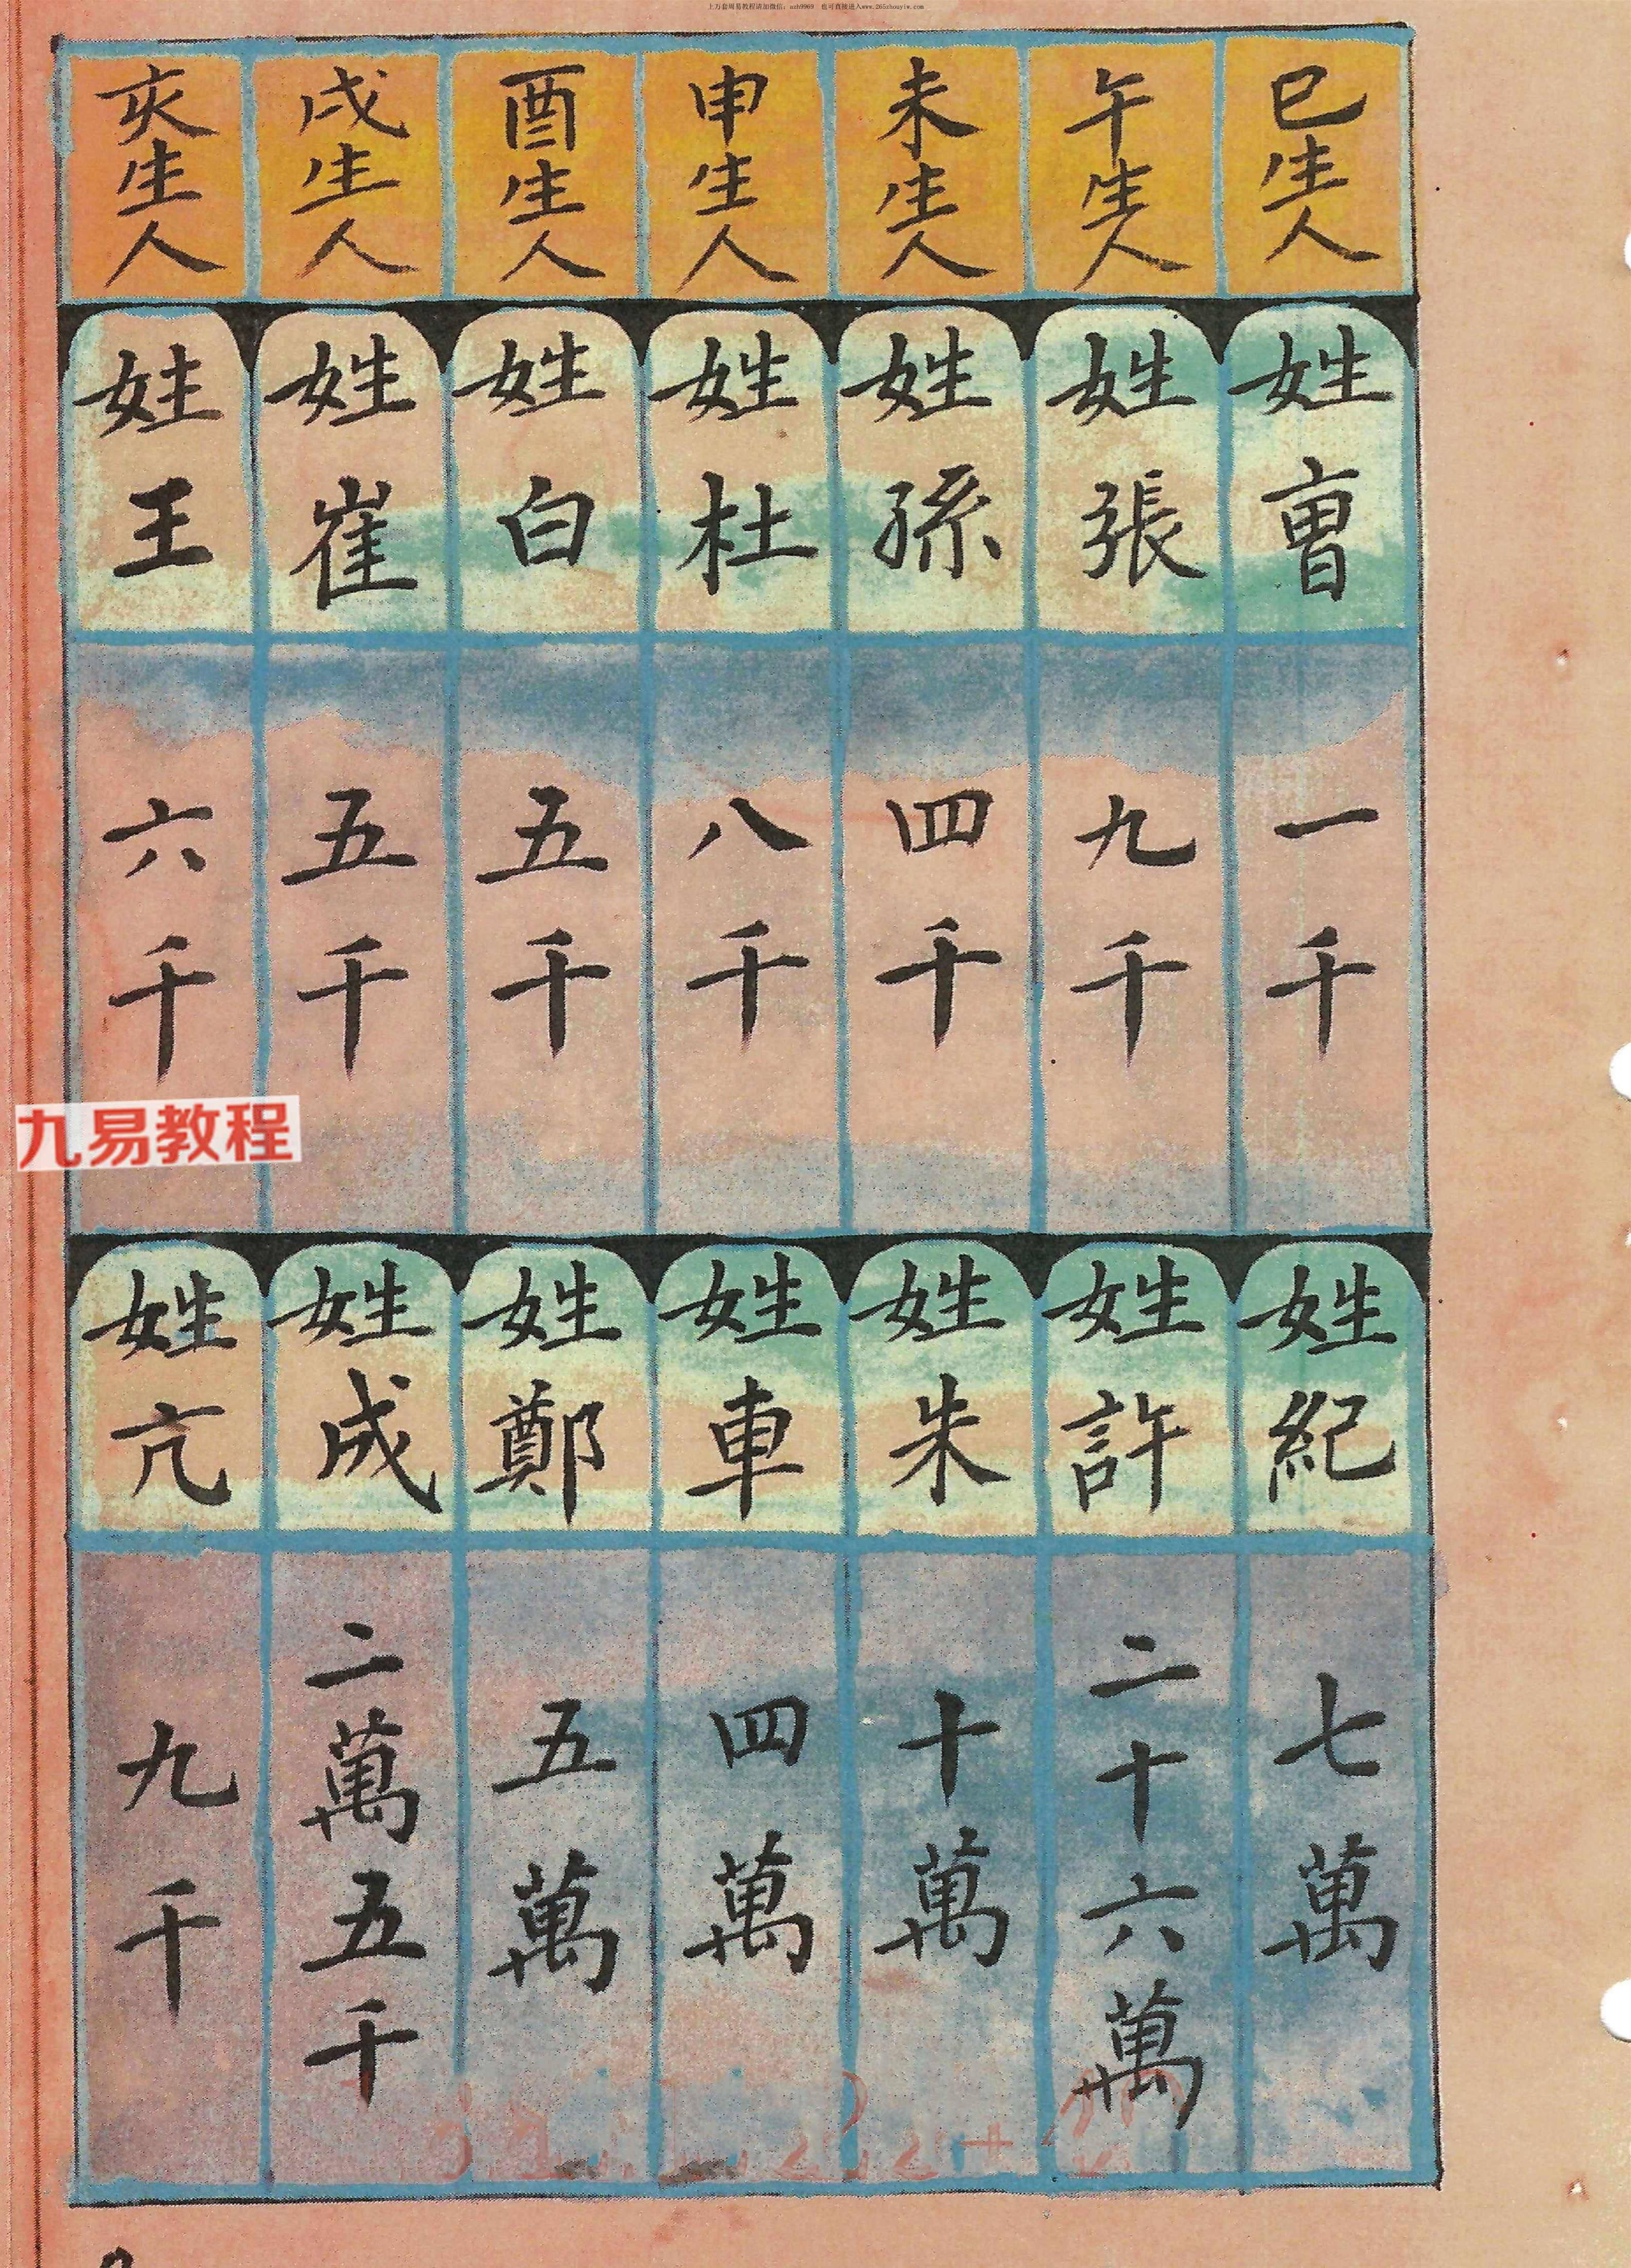 上万套周易教程请加微信：ssh9969 也可直接进入www.265zhouyiw.com
巳生人
姓曹
一千
姓紀
七萬
午生人
姓張
九千
姓許
二十六萬
未生人
姓孫
四千
姓朱
十萬
申生人
姓杜
八千
姓車
四萬
酉生人
姓白
五千
姓鄭
五萬
戌生人
姓崔
五千
姓成
二萬五千
亥生人
姓王
六千
姓亢
九千
九易教程